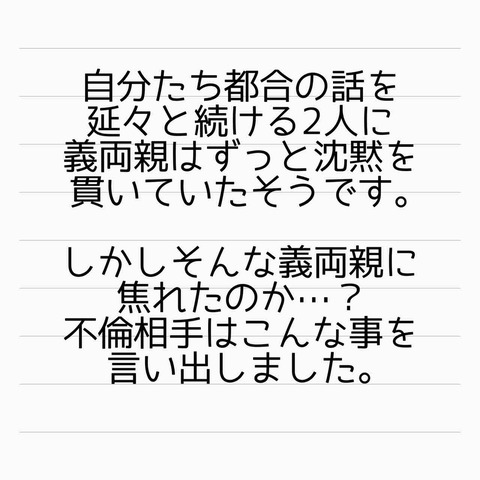 自分たち都合の話を
延々と続ける2人に
義両親はずっと沈黙を
貫いていたそうです。
しかしそんな義両親に
焦れたのか…？
不倫相手はこんな事を
言い出しました。